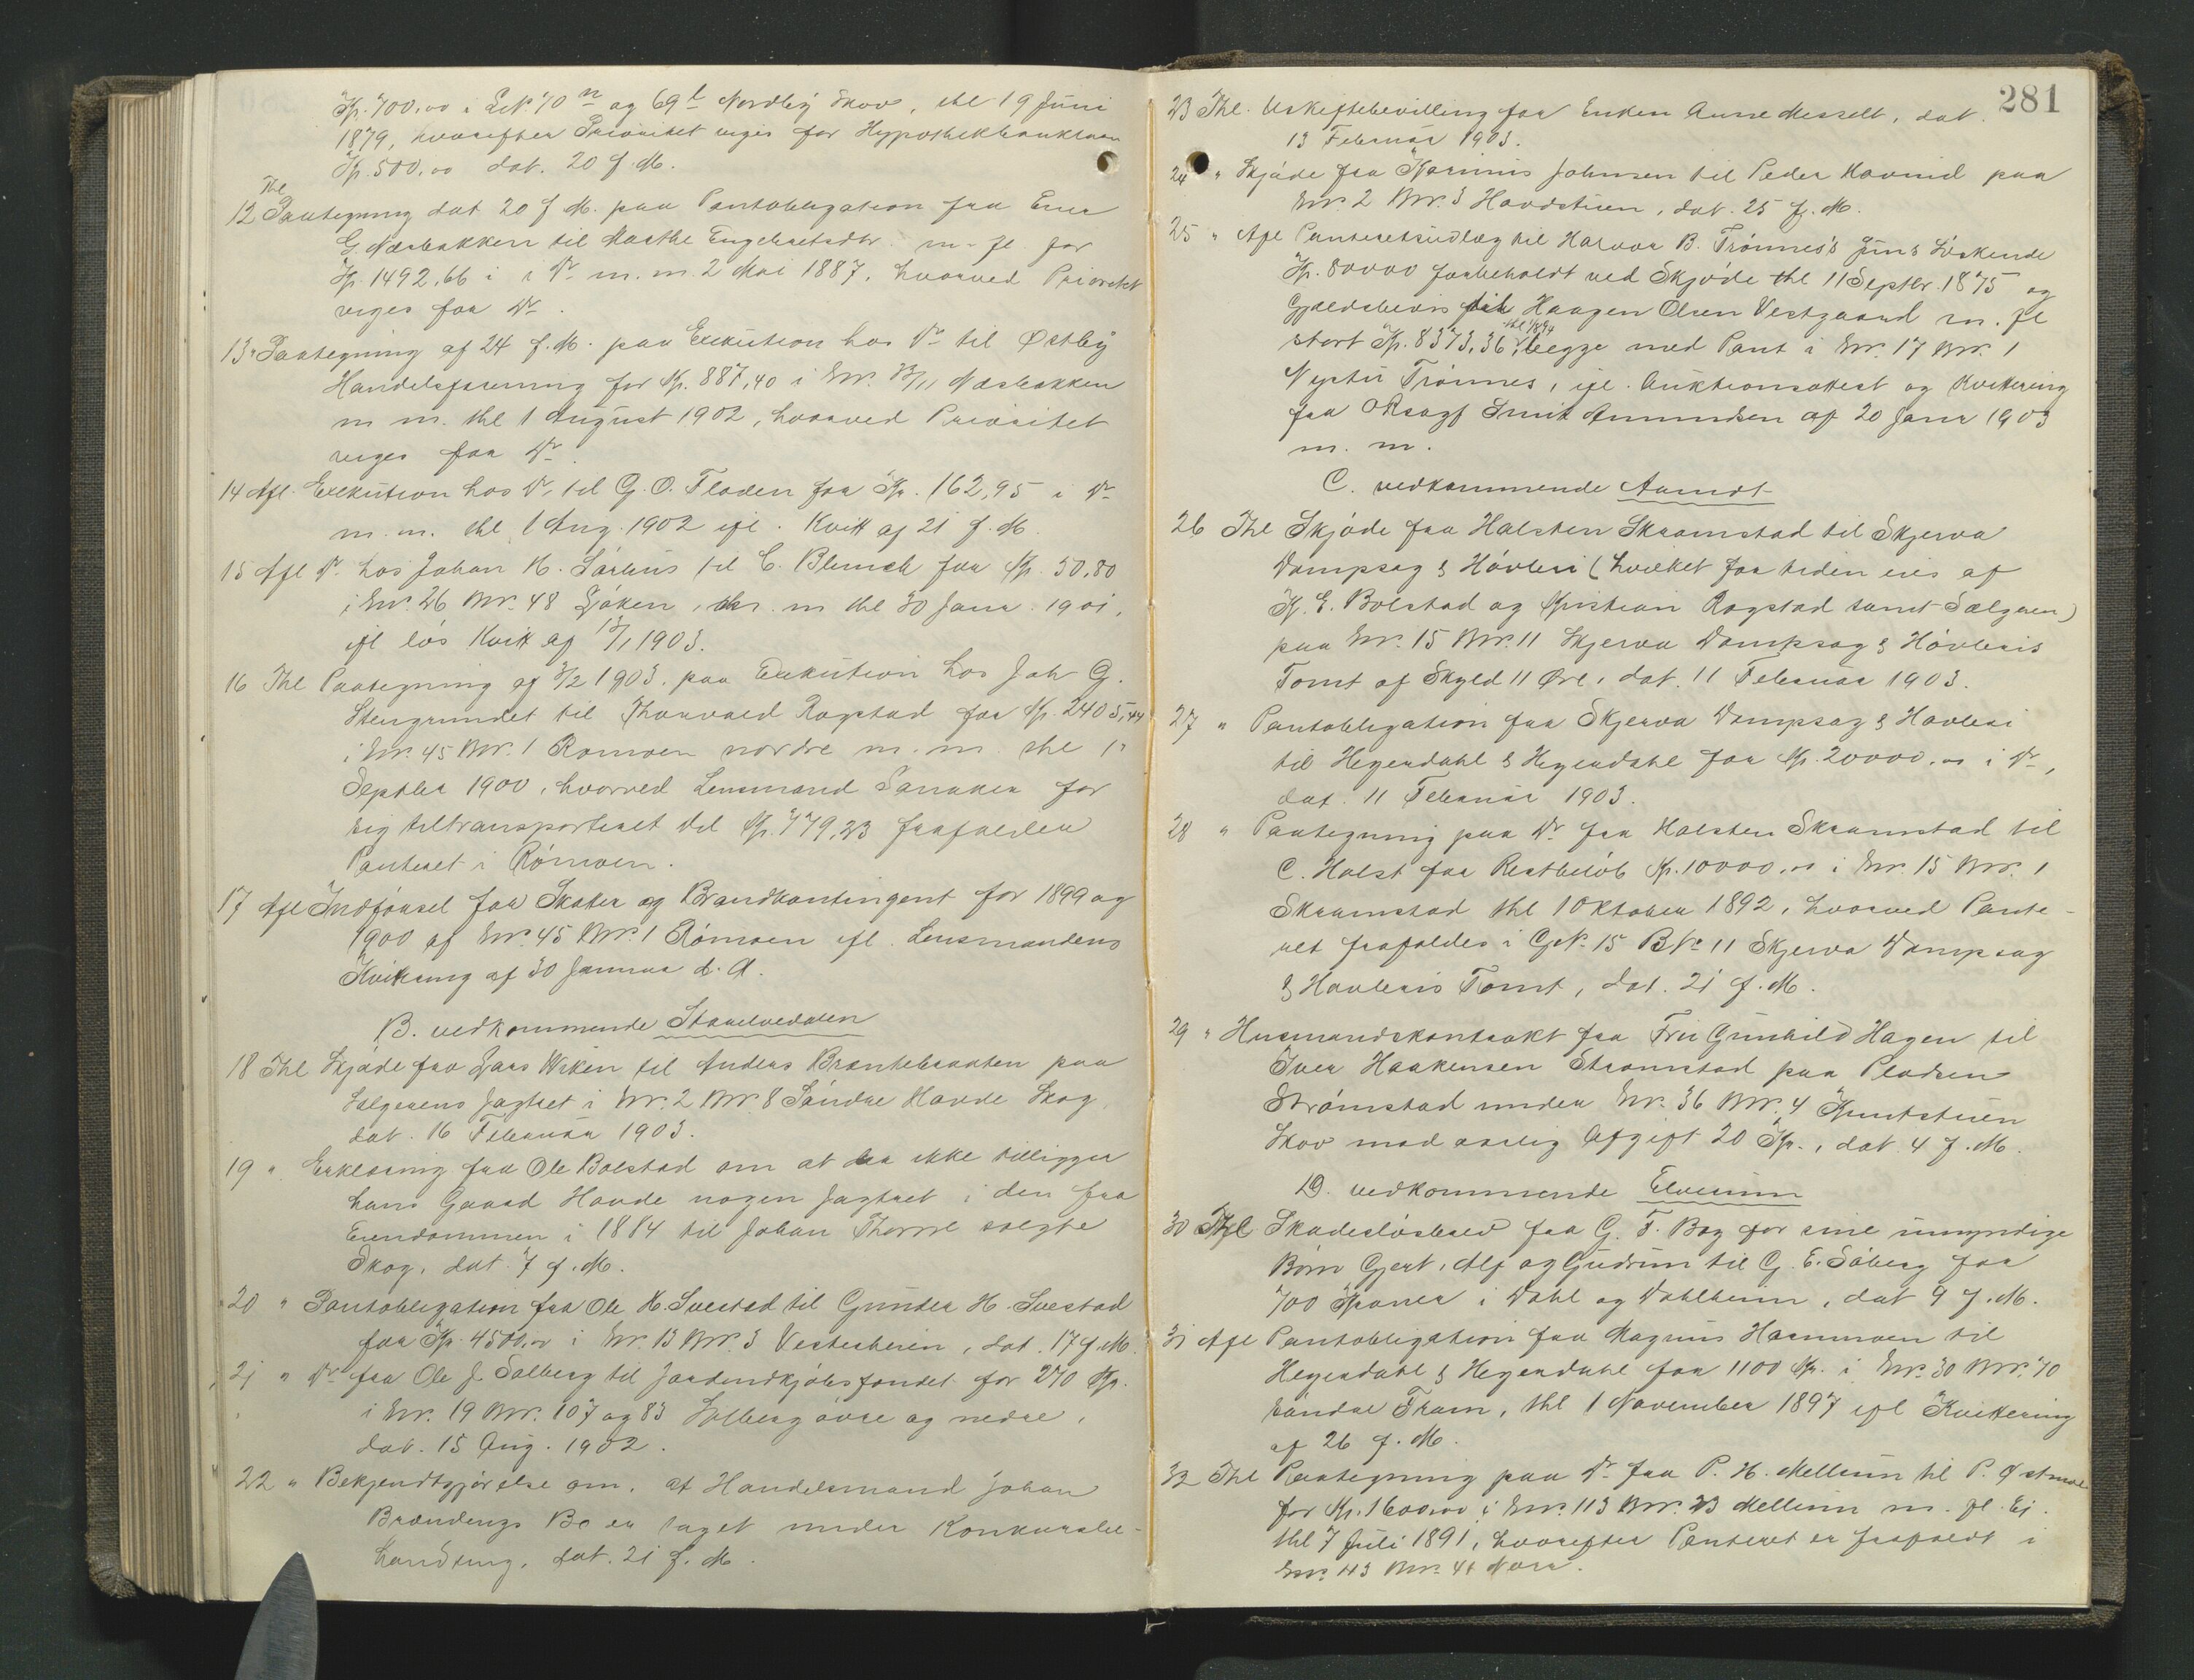 Kr. 700,00 i LN: 70 n og 69 l Nordby Skov, thl 19 Juni
1879, hvorefter Prioritet viges for Hypothekbanklaan
Kr. 500,00 dat. 20 f. M.
12 Thl Paategning dat 20 f. M. paa Pantobligation fra Einar
G. Næsbakken til Marthe Engebretsdtr. m. fl for
Kr. 1492,66 i i Do m. m. 2 Mai 1887, hvorved Prioritet
viges for Do.
13 " Paategning af 24 f. M. paa Execution hos Do til Østby
Handelsforening for Kr. 887,40 i Gnr. 13/11 Næsbakken
m m. thl 1 August 1902, hvorved Prioritet
viges for Do.
14 Afl. Execution hos Do. til G. O. Floden for Kr. 162,95 i Do
m. m. thl 1 Aug. 1902 ifl. Kvitt af 21 f. M.
15 Afl Do. hos Johan H. Sørhus til C. Blunck for Kr. 50,80
i Gnr. 26 Bnr. 48 m. m thl 30 Janr. 1901,
ifl løs Kvitt af 13/1 1903.
16 Thl Paategning af 3/2 1903. paa Execution hos Joh G.
Stengrundet til Thorvald Rogstad for Kr. 2405,44
i Gnr. 45 Bnr. 1 Romoen nordre m. m. thl 1.
Septbr 1900, hvorved Lensmand Sanaker for
sig tiltransporteret Del Kr. 779,23 frafalder
Panteret i Rømoen.
17 Afl Indførsel for Skatter og Brandkontingent for 1899 og
1900 af Gnr. 45 Bnr. 1 Rømoen ifl. Lensmandens
Kvittering af 30 Januar d. A.
B. vedkommende Storelvedalen
18 Thl Skjøde fra Lars Wiken til Anders Brænnebraaten paa
Sælgerens Jagtret i Gnr. 2 Bnr. 8 Søndre Hovde Skog
dat. 16 Februar 1903.
19 " Erklæring fra Ole Bolstad om at der ikke tilligger
hans Gaard Hovde nogen Jagtret i den fra
Eiendommen i 1884 til Johan Thorne solgte
Skog, dat. 7 f. M.
20 " Pantobligation fra Ole H. Svestad til Gunder H. Svestad
for Kr. 4500,00 i Gnr. 13 Bnr. 3 Vesterheim, dat. 17 f. M.
21 " Do fra Ole J. Solberg til Jordindkjøbsfondet for 270 Kr.
i Gnr. 19 Bnr. 107 og 83 Solberg øvre og nedre,
dat. 15 Aug. 1902.
22 " Bekjendtgjørelse om, at Handelsmand Johan
Brændengs Bo er taget under Konkursbe-
handling, dat. 21 f. M.
281
23 Thl. Uskiftebevilling for Enken Anne Messelt, dat.
13 Februar 1903.
24 " Skjøde fra Karinus Johnsen til Peder Hovind paa
Gnr. 2 Bnr. 3 Hovdstuen, dat. 25 f. M.
25 " Afl Panteretsudlæg til Halvor B. Trønnes's Jun's Søskende
Kr. 80000 forbeholdt ved Skjøde thl 11 Septbr. 1875 og
Gjældsbevis til Haagen Olsen Vestgaard m. fl
stort Kr. 8373,36, begge med Pant i Gnr. 17 Bnr. 1
Nystu Trønnes, ifl. Auktionsattest og Kvittering
fra ORsagf Smit Amundsen af 20 Janr 1903
m. m.
C. vedkommende Aamodt
26 Thl Skjøde fra Halsten Skramstad til Skjerva
Dampsag & Høvleri (hvilket for tiden eies af
K. E. Bolstad og Kristian Rogstad samt Sælgeren)
paa Gnr. 15 Bnr. 11 Skjerva Dampsag & Høvleris
Tomt af Skyld 11 Øre, dat. 11 Februar 1903.
27 " Pantobligation fra Skjerva Dampsag & Høvleri
til Hegerdahl & Hegerdahl for Kr. 20000,00 i Do,
dat. 11 Februar 1903.
28 " Paategning paa Do fra Halsten Skramstad til
C. Holst for Restbeløb Kr. 10000,00 i Gnr. 15 Bnr. 1
Skramstad thl 1 Oktober 1892, hvorved Pante-
ret frafaldes i GN: 15 BN: 11 Skjerva Dampsag
& Høvleris Tomt, dat. 21 f. M.
29 " Husmandskontrakt fra Fru Gunhild Hagen til
Iver Haakensen Strømstad paa Pladsen
Strømstad under Gnr. 36 Bnr. 4 Kuntstuen
Skov mod aarlig Afgift 20 Kr., dat. 4 f. M.
D. vedkommende Elverum
30 Thl Skadesløsbrev fra G. F. Boy for sine umyndige
Børn Gert, Alf og Gudrun til G. E. Søberg for
700 Kroner i Dahl og Dahlheim, dat 9 f. M.
31 Afl Pantobligation fra Magnus Hornmoen til
Hegerdahl & Hegerdahl for 1100 Kr. i Gnr. 30 Bnr. 70
søndre Fram, thl 1 November 1897 ifl Kvittering
af 26 f. M.
32 Thl Paategning paa Do fra P. H. Mellum til P. Østmoe
for Kr. 1600,00 i Gnr. 113 Bnr. 23 Mellum m. fl. Ei.
thl 7 Juli 1891, hvorefter Panteret er frafaldt i
Gnr. 113 Bnr. 41 Mora.